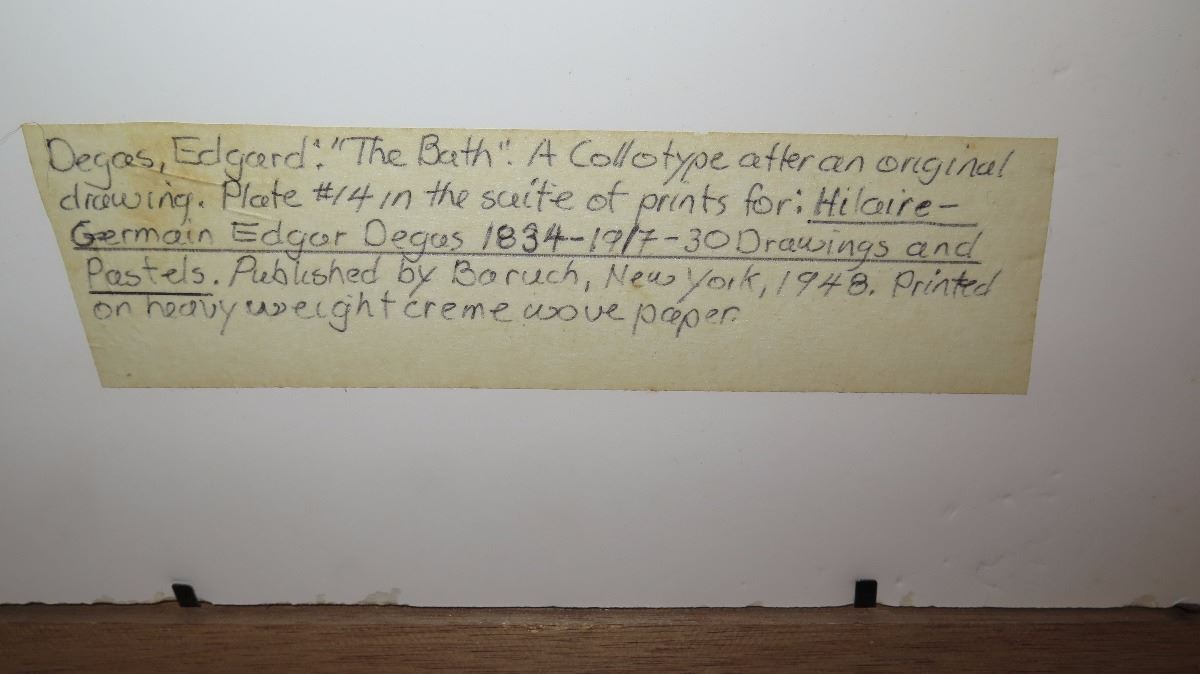 Degas, Edgard: "The Bath". A Collotype after an original
drawing. Plate #14 in the suite of prints for: Hilaire-
Germain Edgar Degas 1834-1917-30 Drawings and
Pastels. Published by Baruch, New York, 1948. Printed
on heavy weight creme wove paper.